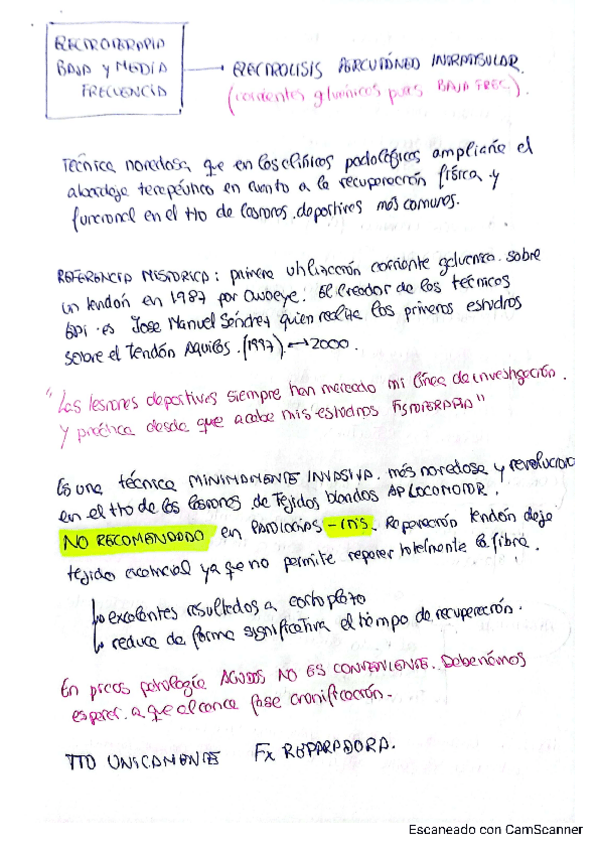 ELECTROTERAPIA
BAJA y MEDIA
FRECUENCIA
ELECTROLISIS PERCUTÁNEO INTRATISULAR.
(corrientes galvánicas puras BAJA FREC).
Técnica novedosa, que en las clínicas podológicas ampliañe el
abordaje terapéutico en cuanto a la recuperación física y
funcional en el tto de lesiones deportivas más comunes.
REFERENCIA HISTORICA: primera utilización corriente galvanica sobre
un tendón en 1987 por Owoeye. El creador de las técnicas
EPI es Jose Manuel Sánchez quien realiza los primeros estudios
sobre el tendón Aquiles. (1997). 2000.
"Las lesiones deportivas siempre han marcado mi línea de investigación.
y práctica desde que acabe mis estudios FISIOTERAPIA"
Es una técnica MINIMAMENTE INVASIVA. más novedosa y revolucion
en el tto de las lesiones de Tejidos blandos AP LOCOMOTOR.
NO RECOMENDADO en PATOLOGIAS -itis. Reparación tendón deja
tejido cicatricial ya que no permite reparar totalmente la fibra.
excelentes resultados a corto plazo
reduce de forma significativa el tiempo de recuperación.
En patología AGUDAS NO ES CONVENIENTE. Debenámos
esperar a que alcance fase cronificación.
TTO UNICAMENTE Fx REPARADORA.
Escaneado con CamScanner